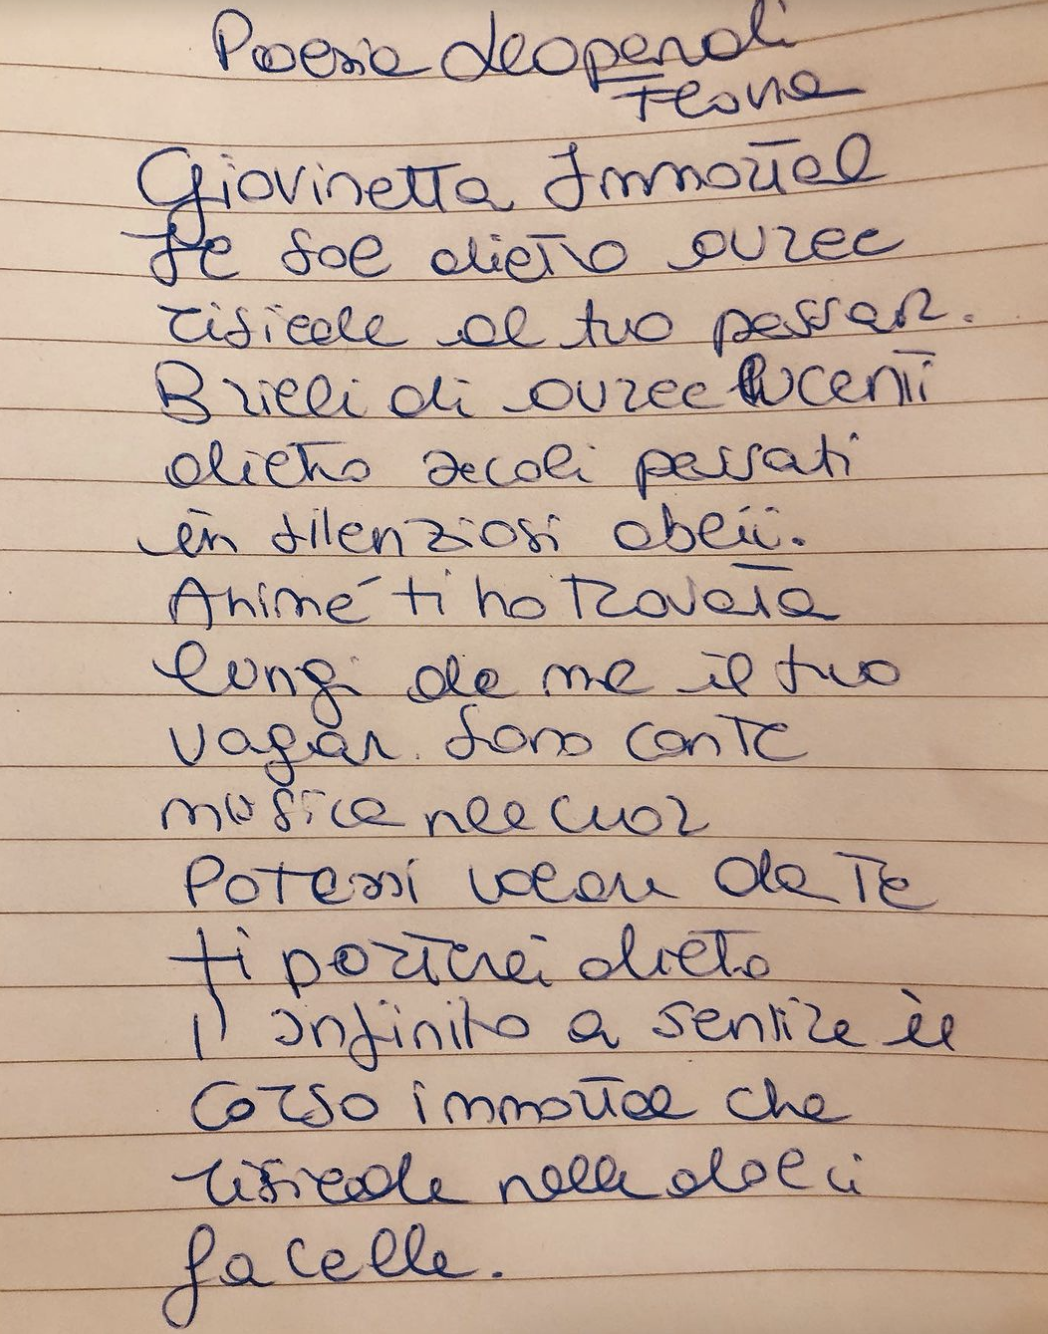 Poesia Leopardi
Flavia
Giovinetta Immortal
Se sol dietro auree
risiede al tuo passar.
Brilli di auree lucenti
dietro secoli passati
in silenziosi oblii.
Animé ti ho trovata
lungi da me il tuo
vagar. Sono con te
musica nel cuor
Potessi volar da Te
ti porterei dietro
l' infinito a sentire il
corso immortal che
risiede nelle dolci
facelle.